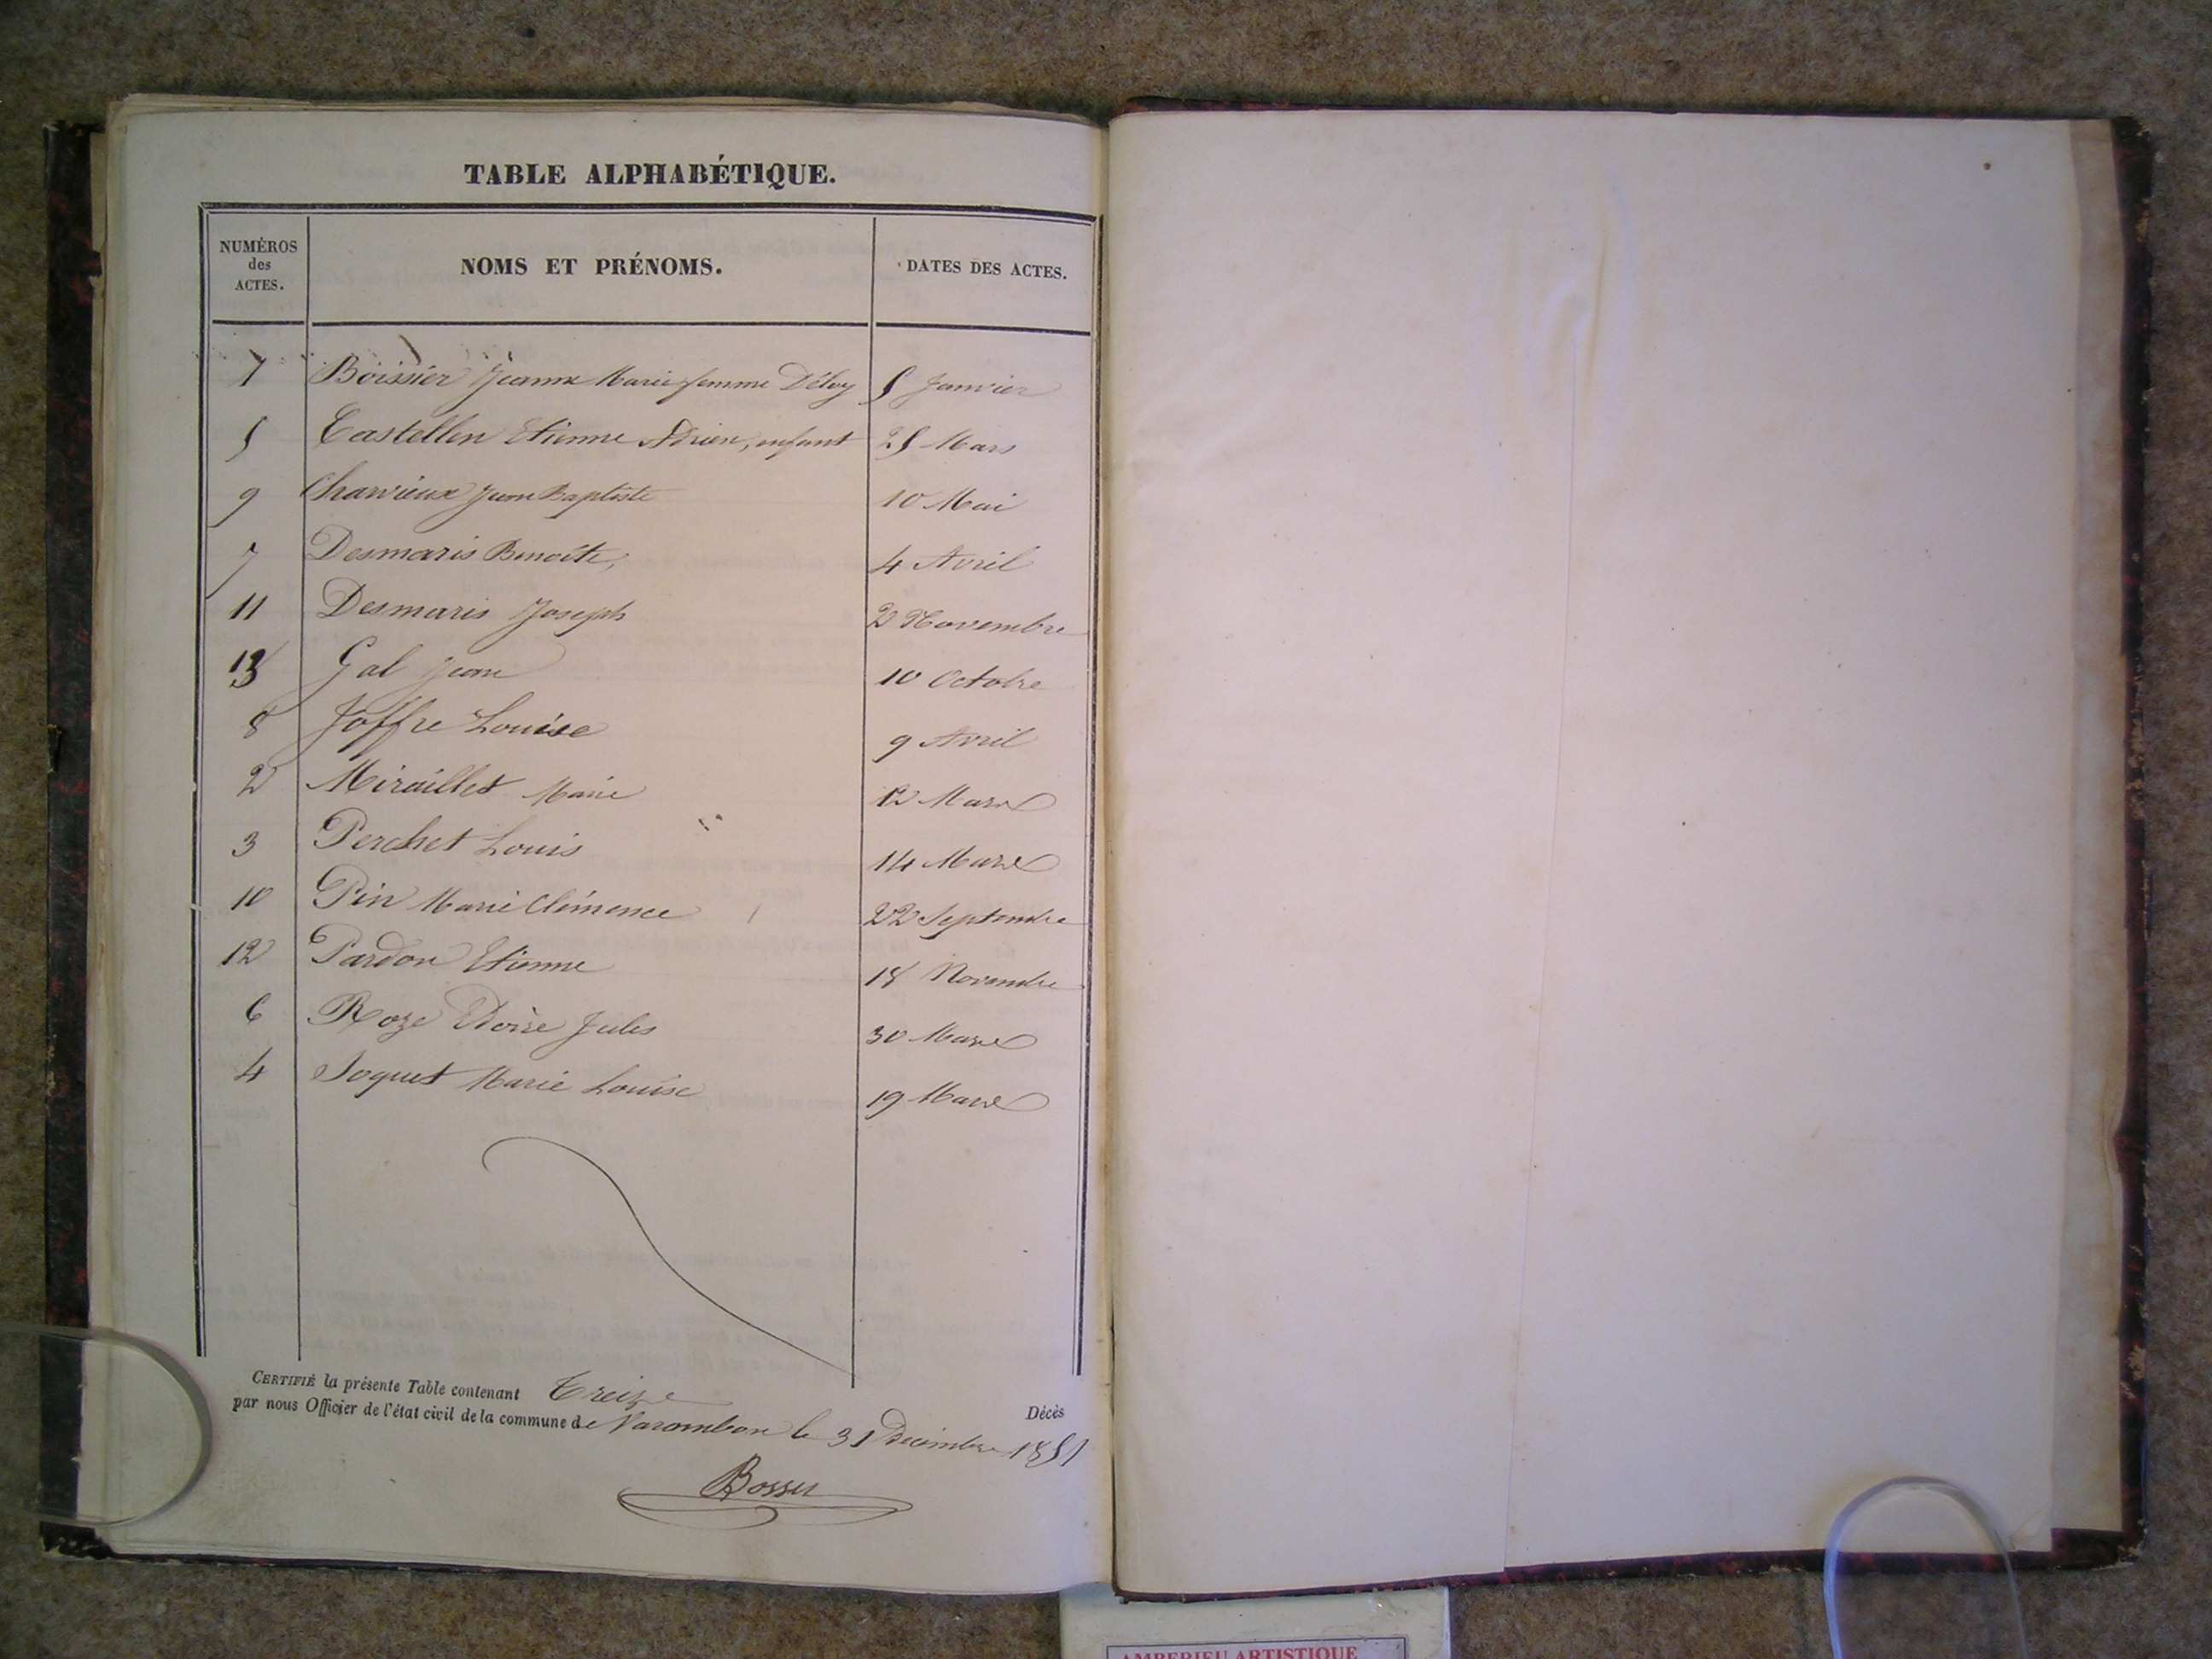 TABLE ALPHABÉTIQUE.
NUMÉROS des ACTES. NOMS ET PRÉNOMS. DATES DES ACTES.
1 Boissier Jeanne Marie femme 5 Janvier
5 Castellin Etienne Adrien, enfant 25 Mars
9 Charvieux Jean Baptiste 10 Mai
7 Desmaris Benoite, 4 Avril
11 Desmaris Joseph 2 Novembre
13 Gal Jean 10 Octobre
8 Joffre Louise 9 Avril
2 Miraillet Marie 12 Mars
3 Perchet Louis 14 Mars
10 Pin Marie Clémence 22 Septembre
12 Pardon Etienne 18 Novembre
6 Roze Jules 30 Mars
4 Joquet Marie Louise 19 Mars
CERTIFIÉ la présente Table contenant Treize Décès
par nous Officier de l'état civil de la commune de Varambon le 31 Décembre 1851
AMBERIEU ARTISTIQUE